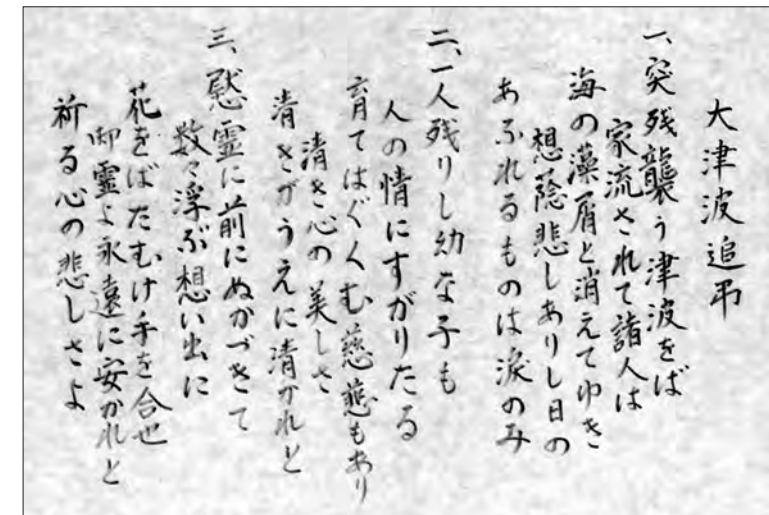 大津波追弔
一、突残襲う津波をば
家流されて諸人は
海の藻屑と消えてゆき
想陰悲しありし日の
あふれるものは涙のみ
二、一人残りし幼な子も
人の情にすがりたる
育てはぐくむ慈悲もあり
清き心の美しさ
清きがうえに清かれと
三、慰霊に前にぬかづきて
数々浮ぶ想い出に
花をばたむけ手を合せ
御霊よ永遠に安かれと
祈る心の悲しさよ